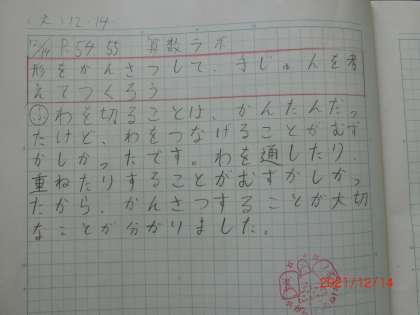 (火)12.14.
12/14 P.54.55 算数ラボ
形をかんさつして、きじゅんを考
えてつくろう
わを切ることは、かんたんだっ
たけど、わをつなげることがむず
かしかったです。わを通したり、
重ねたりすることがむずかしかっ
たから、かんさつすることが大切
なことが分かりました。
2021/12/14